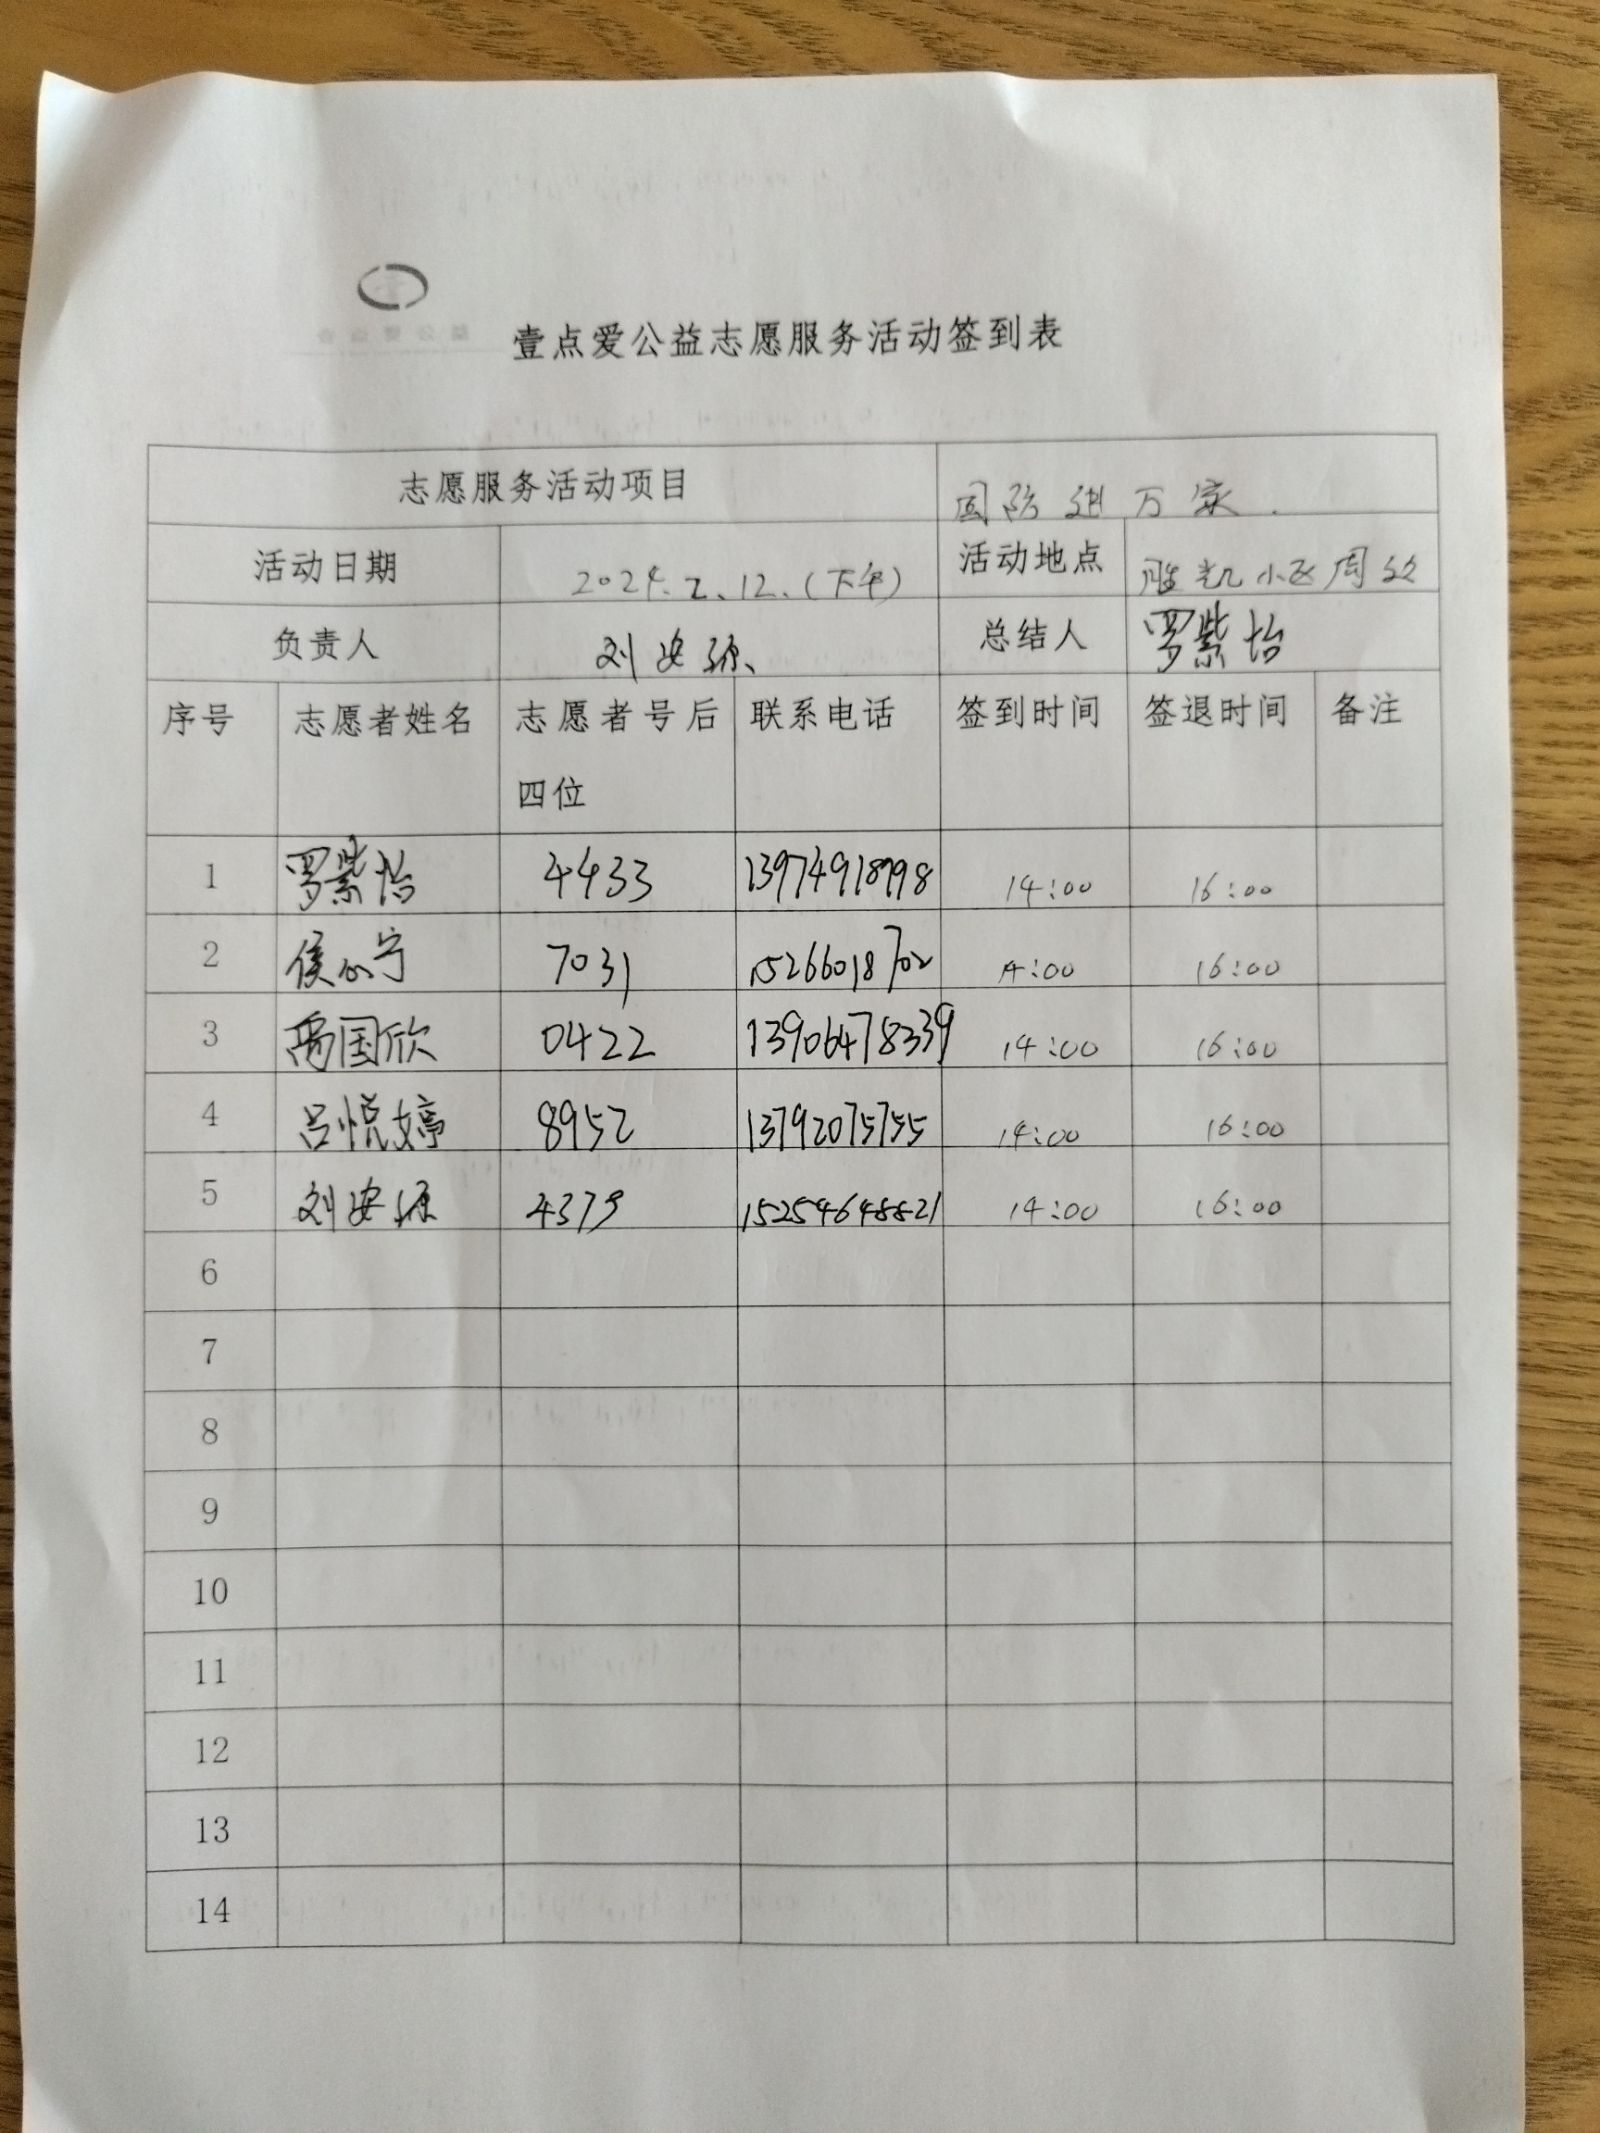 壹点爱公益志愿服务活动签到表
志愿服务活动项目 国防进万家.
活动日期 2024.2.12.(下午) 活动地点 胜凯小区周边
负责人 刘安源、 总结人 罗紫怡
序号 志愿者姓名 志愿者号后四位 联系电话 签到时间 签退时间 备注
1 罗紫怡 4433 13974918998 14:00 16:00
2 侯心宁 7031 15266018702 14:00 16:00
3 禹国欣 0422 13906478339 14:00 16:00
4 吕悦婷 8952 13792075755 14:00 16:00
5 刘安源 4379 15254648821 14:00 16:00
6
7
8
9
10
11
12
13
14